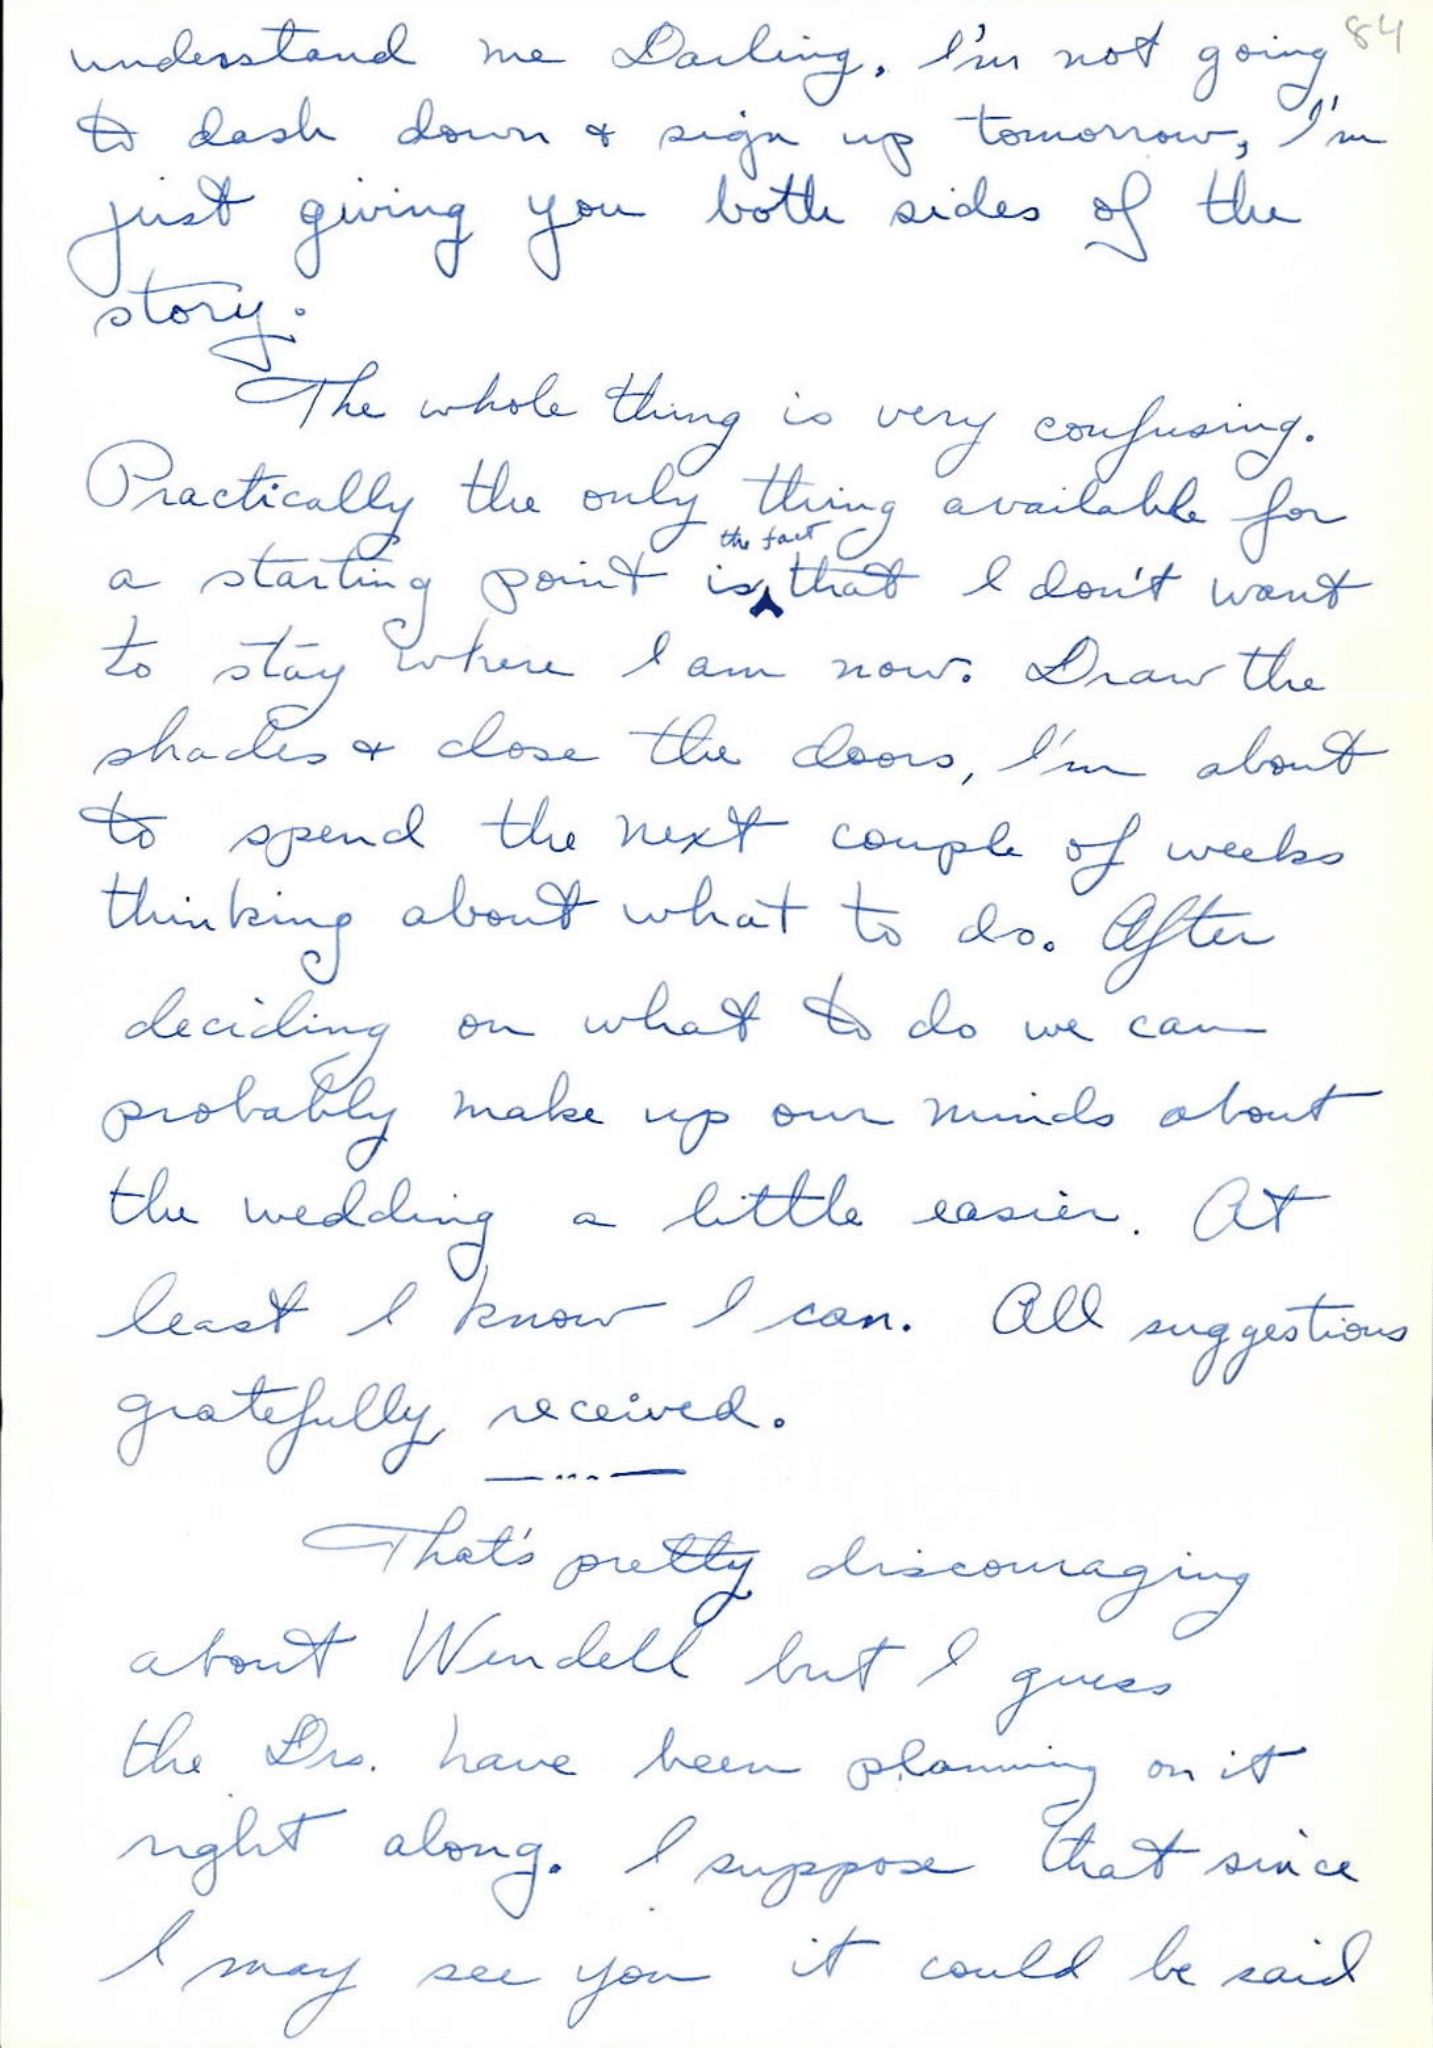 84
understand me Darling. I'm not going
to dash down & sign up tomorrow, I'm
just giving you both sides of the
story.
The whole thing is very confusing.
Practically the only thing available for
the fact
a starting point is that I don't want
to stay where I am now. Draw the
shades & close the doors, I'm about
to spend the next couple of weeks
thinking about what to do. After
deciding on what to do we can
probably make up our minds about
the wedding a little easier. At
least I know I can. All suggestions
gratefully received.
That's pretty discouraging
about Wendell but I guess
the Drs. have been planning on it
right along. I suppose that since
I may see you it could be said